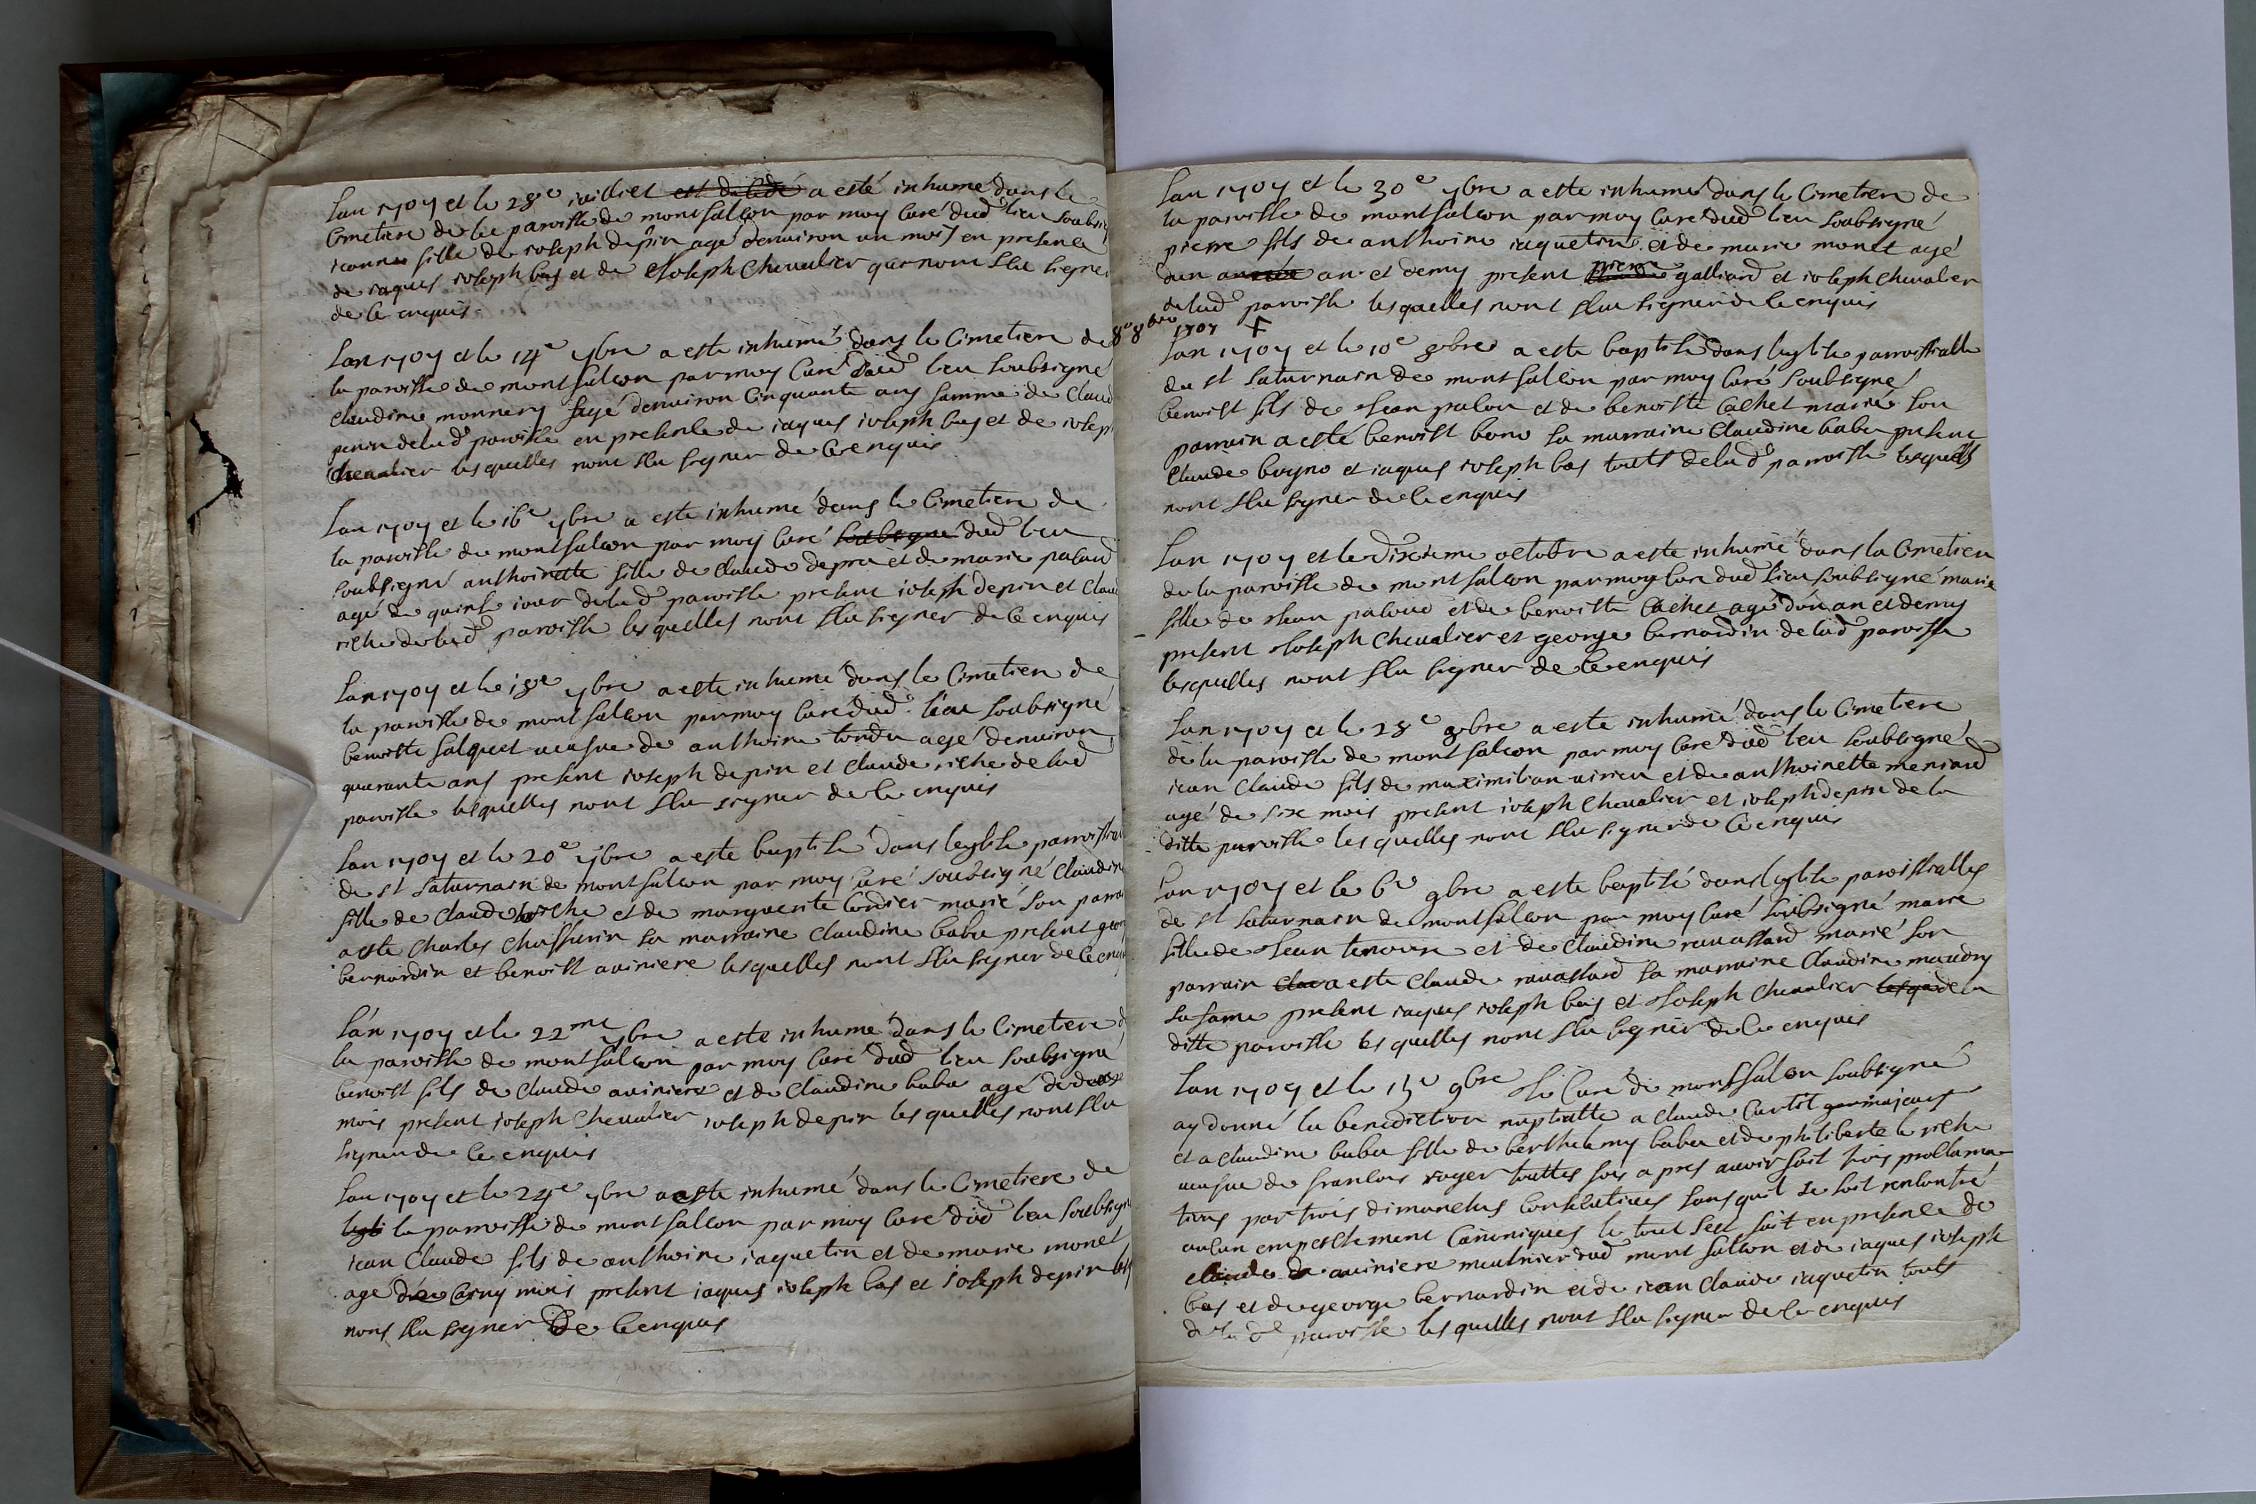 Lan 1707 et le 28e iuilliet est decedé a esté inhumé dans le
Cimetiere de la paroisse de montfalcon par moy Curé dud lieu soubsig
ieanne fille de ioseph depin agé denuiron un mois en presence
de iaques ioseph bas et de Ioseph Cheualier qui nont sceu signer
de ce enquis
Lan 1707 et le 14e 7bre a este inhumé dans le Cimetiere de
la paroisse de montfalcon par moy Curé dud lieu soubsigné
Claudine monnery agé denuiron Cinquante ans famme de Claud
perin de lad paroisse en presence de iaques ioseph bas et de iosep
Cheualier lesquelles nont sceu signer de ce enquis
Lan 1707 et le 16e 7bre a este inhumé dans le Cimetiere de
la paroisse de montfalcon par moy Curé soubsigné dud lieu
soubsigné anthoinette fille de Claude depre et de marie paloud
agé de quinse iour de lad paroisse present ioseph depin et Claud
riche de lad paroisse lesquelles nont sceu signer de ce enquis
Lan 1707 et le 18e 7bre a este inhumé dans le Cimetiere de
la paroisse de montfalcon par moy Curé dud lieu soubsigné
benoiste salquet ueufue de anthoine tondu agé denuiron
quarante ans present ioseph depin et Claude riche de lad
paroisse lesquelles nont sceu signer de ce enquis
Lan 1707 et le 20e 7bre a este baptisé dans leglise paroissial
de st saturnain de montfalcon par moy Curé soubsigné Claudine
fille de Claude et de marguerite Cordier marié son parra
a este Charles Chossurin sa marraine Claudine babu present geor
bernardin et benoist auiniere lesquelles nont sceu signer de ce enq
Lan 1707 et le 22me 7bre a este inhumé dans le Cimetiere d
la paroisse de montfalcon par moy Curé dud lieu soubsigné
benoist fils de Claude auiniere et de Claudine babu agé de deux
mois present ioseph Cheualier ioseph depin lesquelles nont sceu
signer de ce enquis
Lan 1707 et le 24e 7bre a este inhumé dans le Cimetiere de
legli la paroisse de montfalcon par moy Curé dud lieu soubsigne
iean Claude fils de anthoine iaquetin et de marie monet
agé de Cinq mois present iaques ioseph bas et ioseph depin lesq
nont sceu signer De ce enquis
Lan 1707 et le 30e 7bre a este inhumé dans le Cimetiere de
la paroisse de montfalcon par moy Curé dud lieu soubsigné
pierre fils de anthoine iaquetin et de marie monet agé
dun année an et demy present pierre galliard et ioseph Cheualier
de lad paroisse lesquelles nont sceu signer de ce enquis
8bre 1707 +
Lan 1707 et le 10e 8bre a este baptisé dans leglise paroissialle
de st saturnain de montfalcon par moy Curé soubsigné
benoist fils de Jean palou et de benoiste Cachet marié son
parrain a esté benoist bono sa marraine Claudine babu present
Claude buyno et iaques ioseph bas touts de lad paroisse lesquells
nont sceu signer de ce enquis
Lan 1707 et le Dixieme octobre a este inhumé dans la Cimetiere
de la paroisse de montfalcon par moy Curé dud lieu soubsigné marie
fille de Jean paloud et de benoiste Cachet agé dun an et demy
present Joseph Cheualier et george bernardin de lad paroisse
lesquelles nont sceu signer de ce enquis
Lan 1707 et le 28e 8bre a este inhumé dans le Cimetiere
de la paroisse de montfalcon par moy Curé dud lieu soubsigné
iean Claude fils de maximilian uirieu et de anthoinette meniard
agé de six mois present ioseph Cheualier et ioseph depin de la
ditte paroisse lesquelles nont sceu signer de ce enquis
Lan 1707 et le 6e 9bre a este baptisé dans leglise paroissialles
de st saturnain de montfalcon par moy Curé soubsigné marie
fille de Jean tenoure et de Claudine rauassard marié son
parrain Clau a este Claude rauassard sa marraine Claudine maudry
sa fame present iaques ioseph bas et Joseph Cheualier lesque de la
ditte paroisse lesquelles nont sceu signer de ce enquis
Lan 1707 et le 15e 9bre Je Curé de montfalcon soubsigné
ay donné la benediction nuptialle a Claude Curtit
et a Claudine babu fille de berthelemy babu et de philiberte le riche
ueufue de francois royer touttes fois apres auoir fait trois proclama
tions par trois dimanches Consecutiues sans quil se soit rencontré
aucun empeschement Canoniques le tout sest fait en presence de
Claude auiniere meulnier dud montfalcon et de iaques ioseph
bas et de george bernardin et de iean Claude iaquetin touts
de la de paroisse lesquelles nont sceu signer de ce enquis